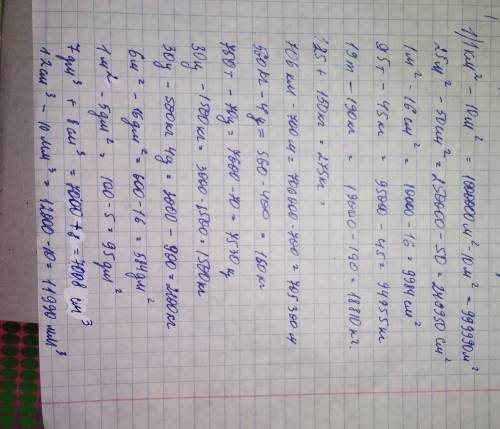 1) 1км² - 10м² = 1000000м²-10м² = 999990м²
25м² - 50см² = 250000 - 50 = 249950 см²
1м² - 16см² = 10000 - 16 = 9984 см²
95т - 45кг = 95000 - 45 = 94955кг
19т - 190кг = 19000 - 190 = 18810 кг.
125 + 150кг = 275кг
706км - 700м = 706000-700 = 705300м
560кг - 4ц = 560-400 = 160кг
760т - 70ц = 7600-70 = 7530ц
30ц - 1500кг = 3000-1500 = 1500кг
30ц - 500кг 4ц = 3000-900 = 2100кг
6м² - 16дм² = 600-16 = 584дм²
1м² - 5дм² = 100-5 = 95дм²
7дм³ + 8см³ = 7000+8 = 7008 см³
12см³ - 10мм³ = 12000-10 = 11990мм³